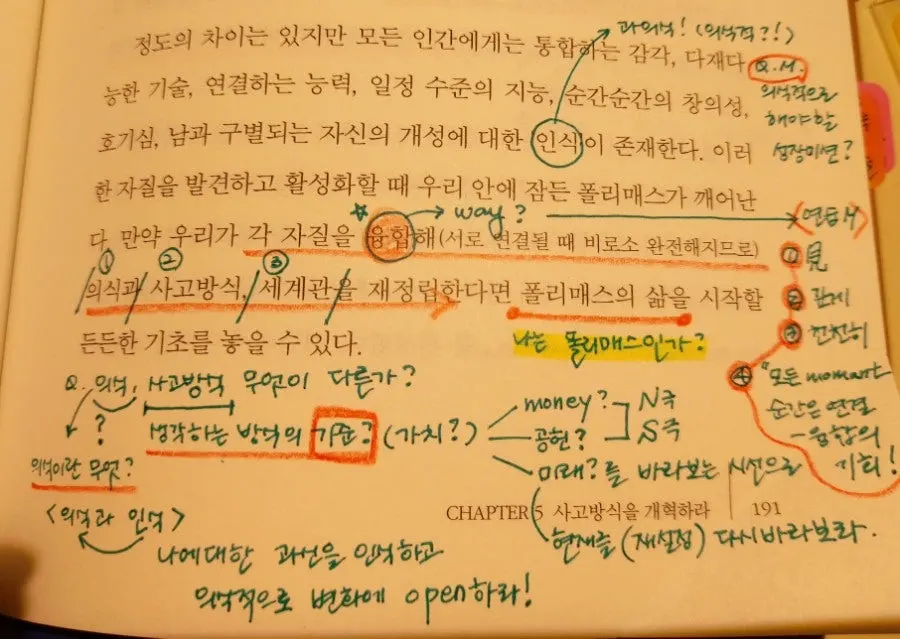 정도의 차이는 있지만 모든 인간에게는 통합하는 감각, 다재다
능한 기술, 연결하는 능력, 일정 수준의 지능, 순간순간의 창의성,
호기심, 남과 구별되는 자신의 개성에 대한 인식이 존재한다. 이러
한 자질을 발견하고 활성화할 때 우리 안에 잠든 폴리매스가 깨어난
다. 만약 우리가 각 자질을 융합해(서로 연결될 때 비로소 완전해지므로)
의식과 사고방식, 세계관을 재정립하다면 폴리매스의 삶을 시작할
든든한 기초를 놓을 수 있다.
CHAPTER 5 사고방식을 개혁하라 191
과의식! (의식적?!)
Q.M.
의식적으로
해야할
성장미션?
way?
① ② ③
① 見
② 관계
③ 천천히
④ "모든 moment
순간은 연결
-융합의
기회!
나는 폴리매스인가?
Q. 의식, 사고방식 무엇이 다른가?
?
의식이란 무엇?
생각하는 방식의 기준? (가치?)
money? N극
공헌? S극
미래?를 바라보는 시선으로
현재를 (재설정) 다시바라보라.
<의식과 인식>
나에대한 과선을 인식하고
의식적으로 변화에 open하라!